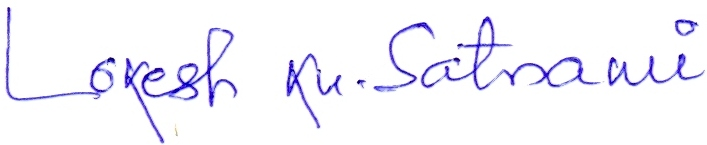 Lokesh Ku. Satnami